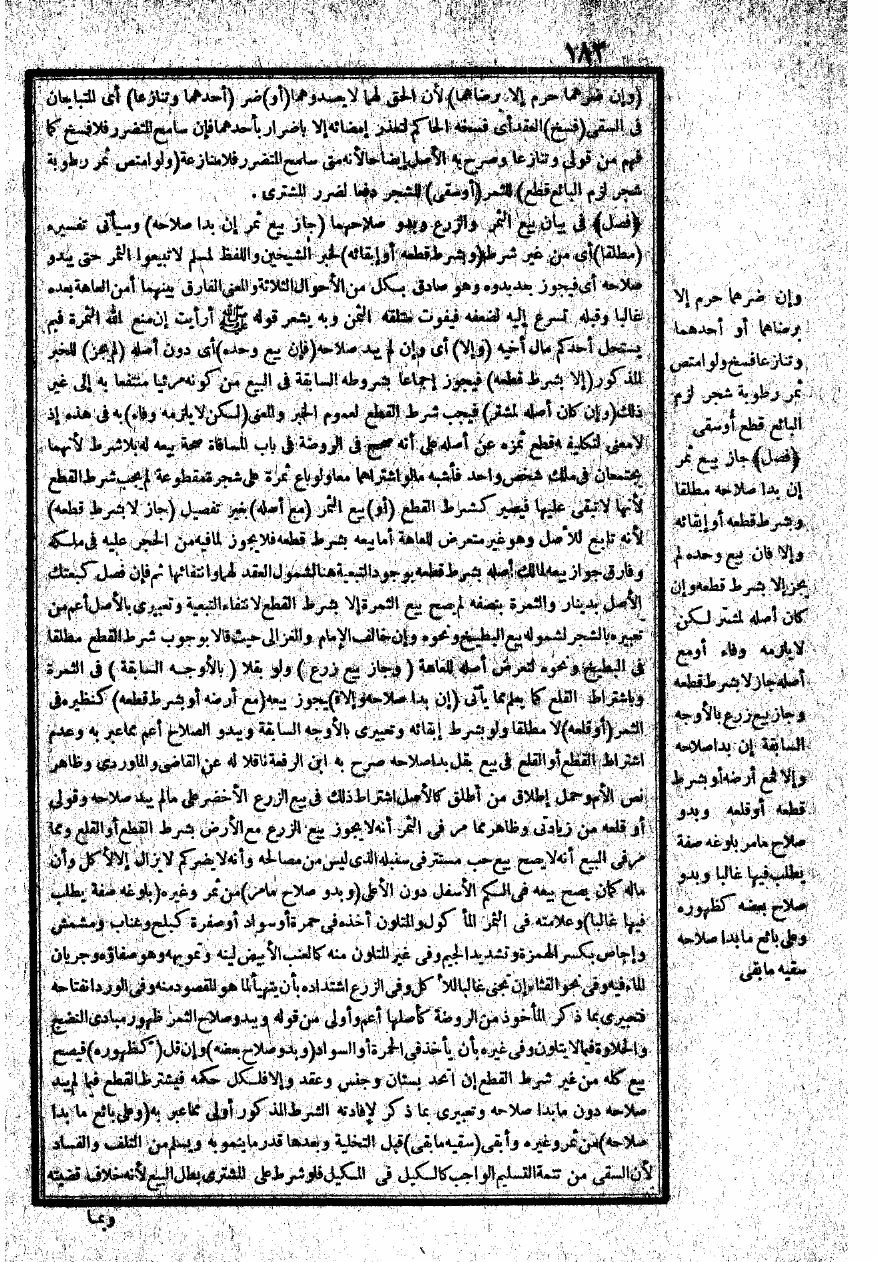 ١٨٣
(وإن ضرهما حرم إلا برضاهما) لأن الحق لهما لا يعدوهما (أو) ضر (أحدهما وتنازعا) أى المتبايعان
فى السقى (فسخ) العقد أى فسخه الحاكم لتعذر إمضائه إلا باضرار بأحدهما فإن سامح المتضرر فلا فسخ كما
فهم من قولى وتنازعا وصرح به الأصل إيضاحا لأنه متى سامح المتضرر فلا منازعة (ولو امتص ثمر رطوبة
شجر لزم البائع قطع) للثمر (أو سقى) للشجر دفعا لضرر المشترى .
﴿فصل﴾ فى بيان بيع الثمر والزرع وبدو صلاحهما (جاز بيع ثمر إن بدا صلاحه) وسيأتى تفسيره
(مطلقا) أى من غير شرط (وبشرط قطعه أو إبقائه) لخبر الشيخين واللفظ لمسلم لا تبيعوا الثمر حتى يبدو
صلاحه أى فيجوز بعد بدوه وهو صادق بكل من الأحوال الثلاثة والمعنى الفارق بينهما أمن العاهة بعده
غالبا وقبله تسرع إليه لضعفه فيفوت بتلفه الثمن وبه يشعر قوله ﷺ أرأيت إن منع الله الثمرة فبم
يستحل أحدكم مال أخيه (وإلا) أى وإن لم يبد صلاحه (فإن بيع وحده) أى دون أصله (لم يجز) للخبر
المذكور (إلا بشرط قطعه) فيجوز إجماعا بشروطه السابقة فى البيع من كونه مرئيا منتفعا به إلى غير
ذلك (وإن كان أصله لمشتر) فيجب شرط القطع لعموم الخبر والمعنى (لكن لا يلزمه وفاء) به فى هذه إذ
لا معنى لتكليفه قطع ثمره عن أصله على أنه صحح فى الروضة فى باب المساقاة صحة بيعه له بلا شرط لأنهما
يجتمعان فى ملك شخص واحد فأشبه ما لو اشتراهما معا ولو باع ثمرة على شجرة مقطوعة لم يجب شرط القطع
لأنها لا تبقى عليها فيصير كشرط القطع (أو) بيع الثمر (مع أصله) بغير تفصيل (جاز لا بشرط قطعه)
لأنه تابع للأصل وهو غير متعرض للعاهة أما بيعه بشرط قطعه فلا يجوز لما فيه من الحجر عليه فى ملكه
وفارق جواز بيعه لمالك أصله بشرط قطعه بوجود التبعية هنا لشمول العقد لهما وانتفائها ثم فإن فصل كبعتك
الأصل بدينار والثمرة بنصفه لم يصح بيع الثمرة إلا بشرط القطع لانتفاء التبعية وتعبيرى بالأصل أعم من
تعبيره بالشجر لشموله بيع البطيخ ونحوه وإن خالف الإمام والغزالى حيث قالا بوجوب شرط القطع مطلقا
فى البطيخ ونحوه لتعرض أصله للعاهة (وجاز بيع زرع) ولو بقلا (بالأوجه السابقة) فى الثمرة
وباشتراط القلع كما يعلم مما يأتى (إن بدا صلاحه وإلا) يجوز بيعه (مع أرضه أو بشرط قطعه) كنظيره فى
الثمر (أو قلعه) لا مطلقا ولو بشرط إبقائه وتعبيرى بالأوجه السابقة وببدو الصلاح أعم مما عبر به وعدم
اشتراط القطع أو القلع فى بيع بقل بدا صلاحه صرح به ابن الرفعة ناقلا له عن القاضى والماوردى وظاهر
نص الأم وحمل إطلاق من أطلق كالأصل اشتراط ذلك فى بيع الزرع الأخضر على ما لم يبد صلاحه وقولى
أو قلعه من زيادتى وظاهر مما مر فى الثمر أنه لا يجوز بيع الزرع مع الأرض بشرط القطع أو القلع ومما
مر فى البيع أنه لا يصح بيع حب مستتر فى سنبله الذى ليس من مصالحه وأنه لا يضر كم لا يزال إلا لأكل وأن
ماله كمان يصح بيعه فى الكم الأسفل دون الأعلى (وبدو صلاح ما مر) من ثمر وغيره (بلوغه صفة يطلب
فيها غالبا) وعلامته فى الثمر المأكول والمتلون أخذه فى حمرة أو سواد أو صفرة كبلح وعناب ومشمش
وإجاص بكسر الهمزة وتشديد الجيم وفى غير المتلون منه كالعنب الأبيض لينه وتمويهه وهو صفاؤه وجريان
الماء فيه وفى نحو القثاء إن تجنى غالبا للأكل وفى الزرع اشتداده بأن يتهيأ لما هو المقصود منه وفى الورد انفتاحه
فتعبيرى بما ذكر المأخوذ من الروضة كأصلها أعم وأولى من قوله ويبدو صلاح الثمر ظهور مبادى النضج
والحلاوة فيما لا يتلون وفى غيره بأن يأخذ فى الحمرة أو السواد (وبدو صلاح بعضه) وإن قل (كظهوره) فيصح
بيع كله من غير شرط القطع إن اتحد بستان وجنس وعقد وإلا فلكل حكمه فيشترط القطع فيما لم يبد
صلاحه دون ما بدا صلاحه وتعبيرى بما ذكر لإفادته الشرط المذكور أولى مما عبر به (وعلى بائع ما بدا
صلاحه) من ثمر وغيره وأبقى (سقيه ما بقى) قبل التخلية وبعدها قدر ما ينمو به ويسلم من التلف والفساد
لأن السقى من تتمة التسليم الواجب كالكيل فى المكيل فلو شرط على المشترى بطل البيع لأنه خلاف قضيته
وبما
وإن ضرهما حرم إلا
برضاهما أو أحدهما
وتنازعا فسخ ولو امتص
ثمر رطوبة شجر لزم
البائع قطع أو سقى
﴿فصل﴾ جاز بيع ثمر
إن بدا صلاحه مطلقا
وبشرط قطعه أو إبقائه
وإلا فإن بيع وحده لم
يجز إلا بشرط قطعه وإن
كان أصله لمشتر لكن
لا يلزمه وفاء أو مع
أصله جاز لا بشرط قطعه
وجاز بيع زرع بالأوجه
السابقة إن بدا صلاحه
وإلا فمع أرضه أو بشرط
قطعه أو قلعه وبدو
صلاح ما مر بلوغه صفة
يطلب فيها غالبا وبدو
صلاح بعضه كظهوره
وعلى بائع ما بدا صلاحه
سقيه ما بقى